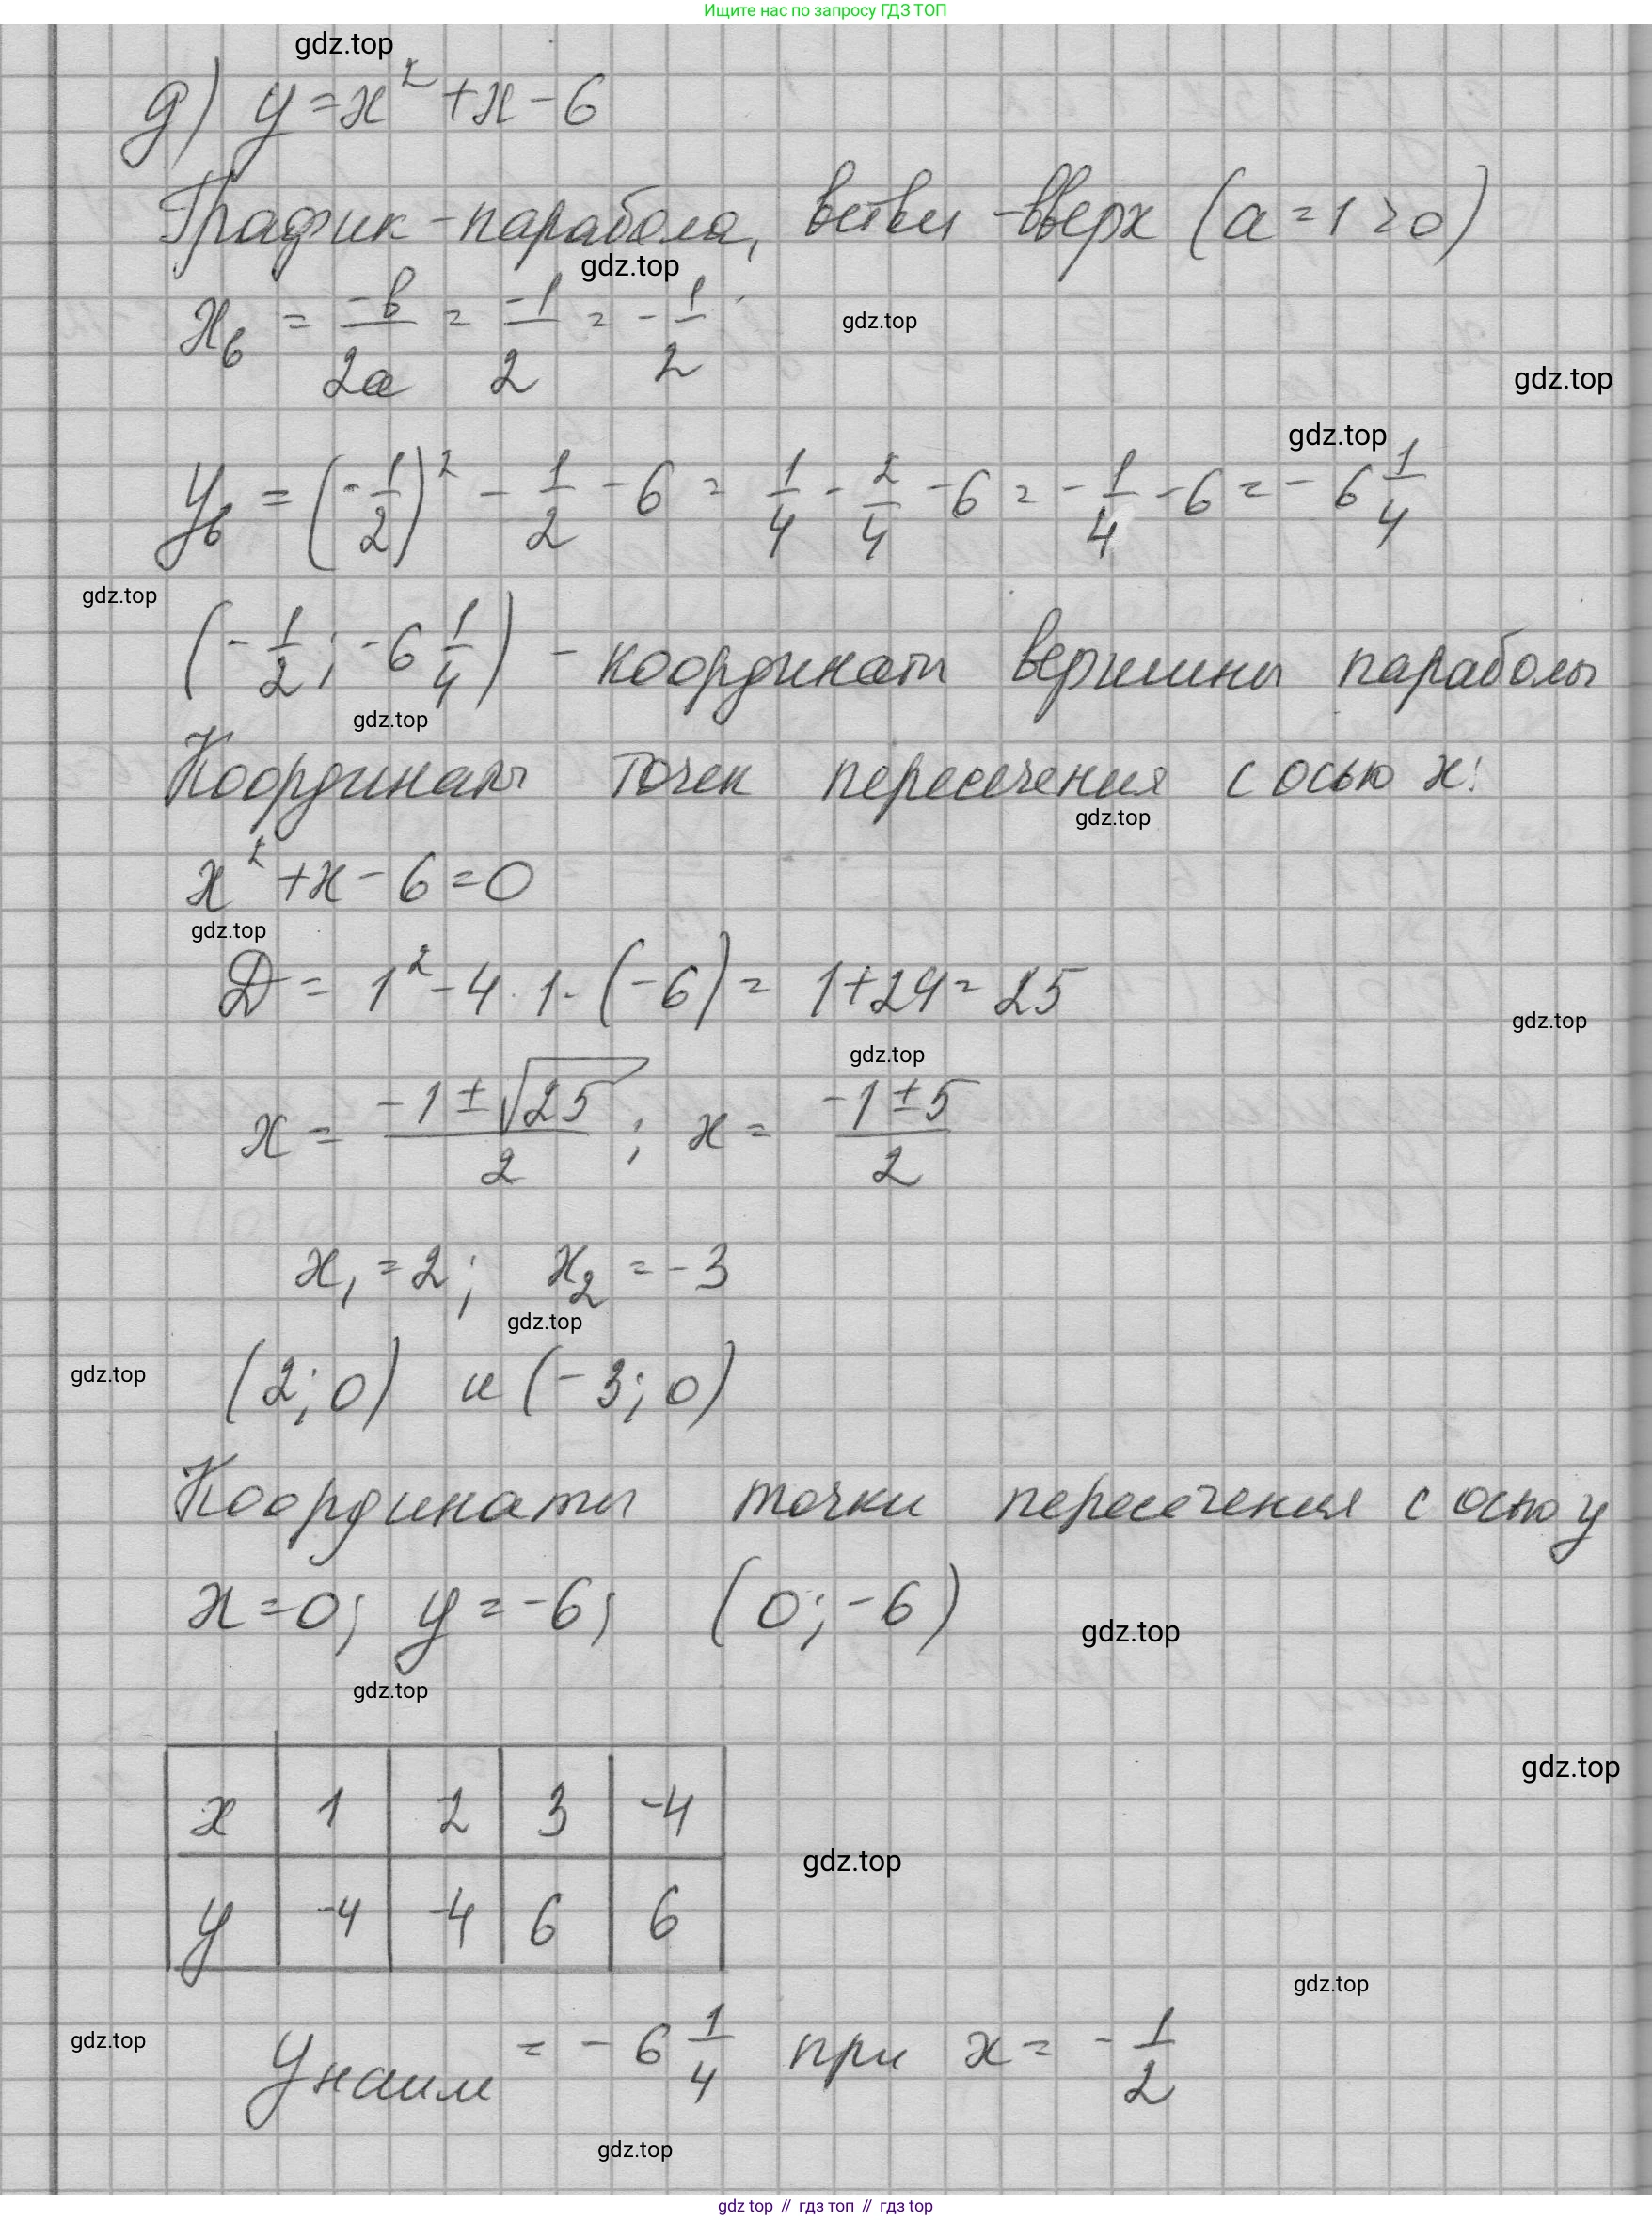 Ищите нас по запросу ГДЗ ТОП
gdz.top
д) y = x² + x - 6
График - парабола, ветви - вверх (a = 1 > 0)
gdz.top
x_в = -b/2a = -1/2 = - 1/2
gdz.top
gdz.top
gdz.top
y_в = (-1/2)² - 1/2 - 6 = 1/4 - 2/4 - 6 = - 1/4 - 6 = - 6 1/4
gdz.top
(-1/2; -6 1/4) - координаты вершины параболы
gdz.top
Координаты точек пересечения с осью x:
gdz.top
x² + x - 6 = 0
gdz.top
D = 1² - 4 · 1 · (-6) = 1 + 24 = 25
gdz.top
gdz.top
x = (-1 ± √25)/2 ; x = (-1 ± 5)/2
x₁ = 2; x₂ = -3
gdz.top
gdz.top
(2; 0) и (-3; 0)
Координаты точки пересечения с осью y
x = 0; y = -6; (0; -6)
gdz.top
gdz.top
gdz.top
x 1 -2 3 -4
gdz.top
y -4 -4 6 6
gdz.top
gdz.top
y наим = - 6 1/4 при x = - 1/2
gdz.top
gdz top // гдз топ // гдз top